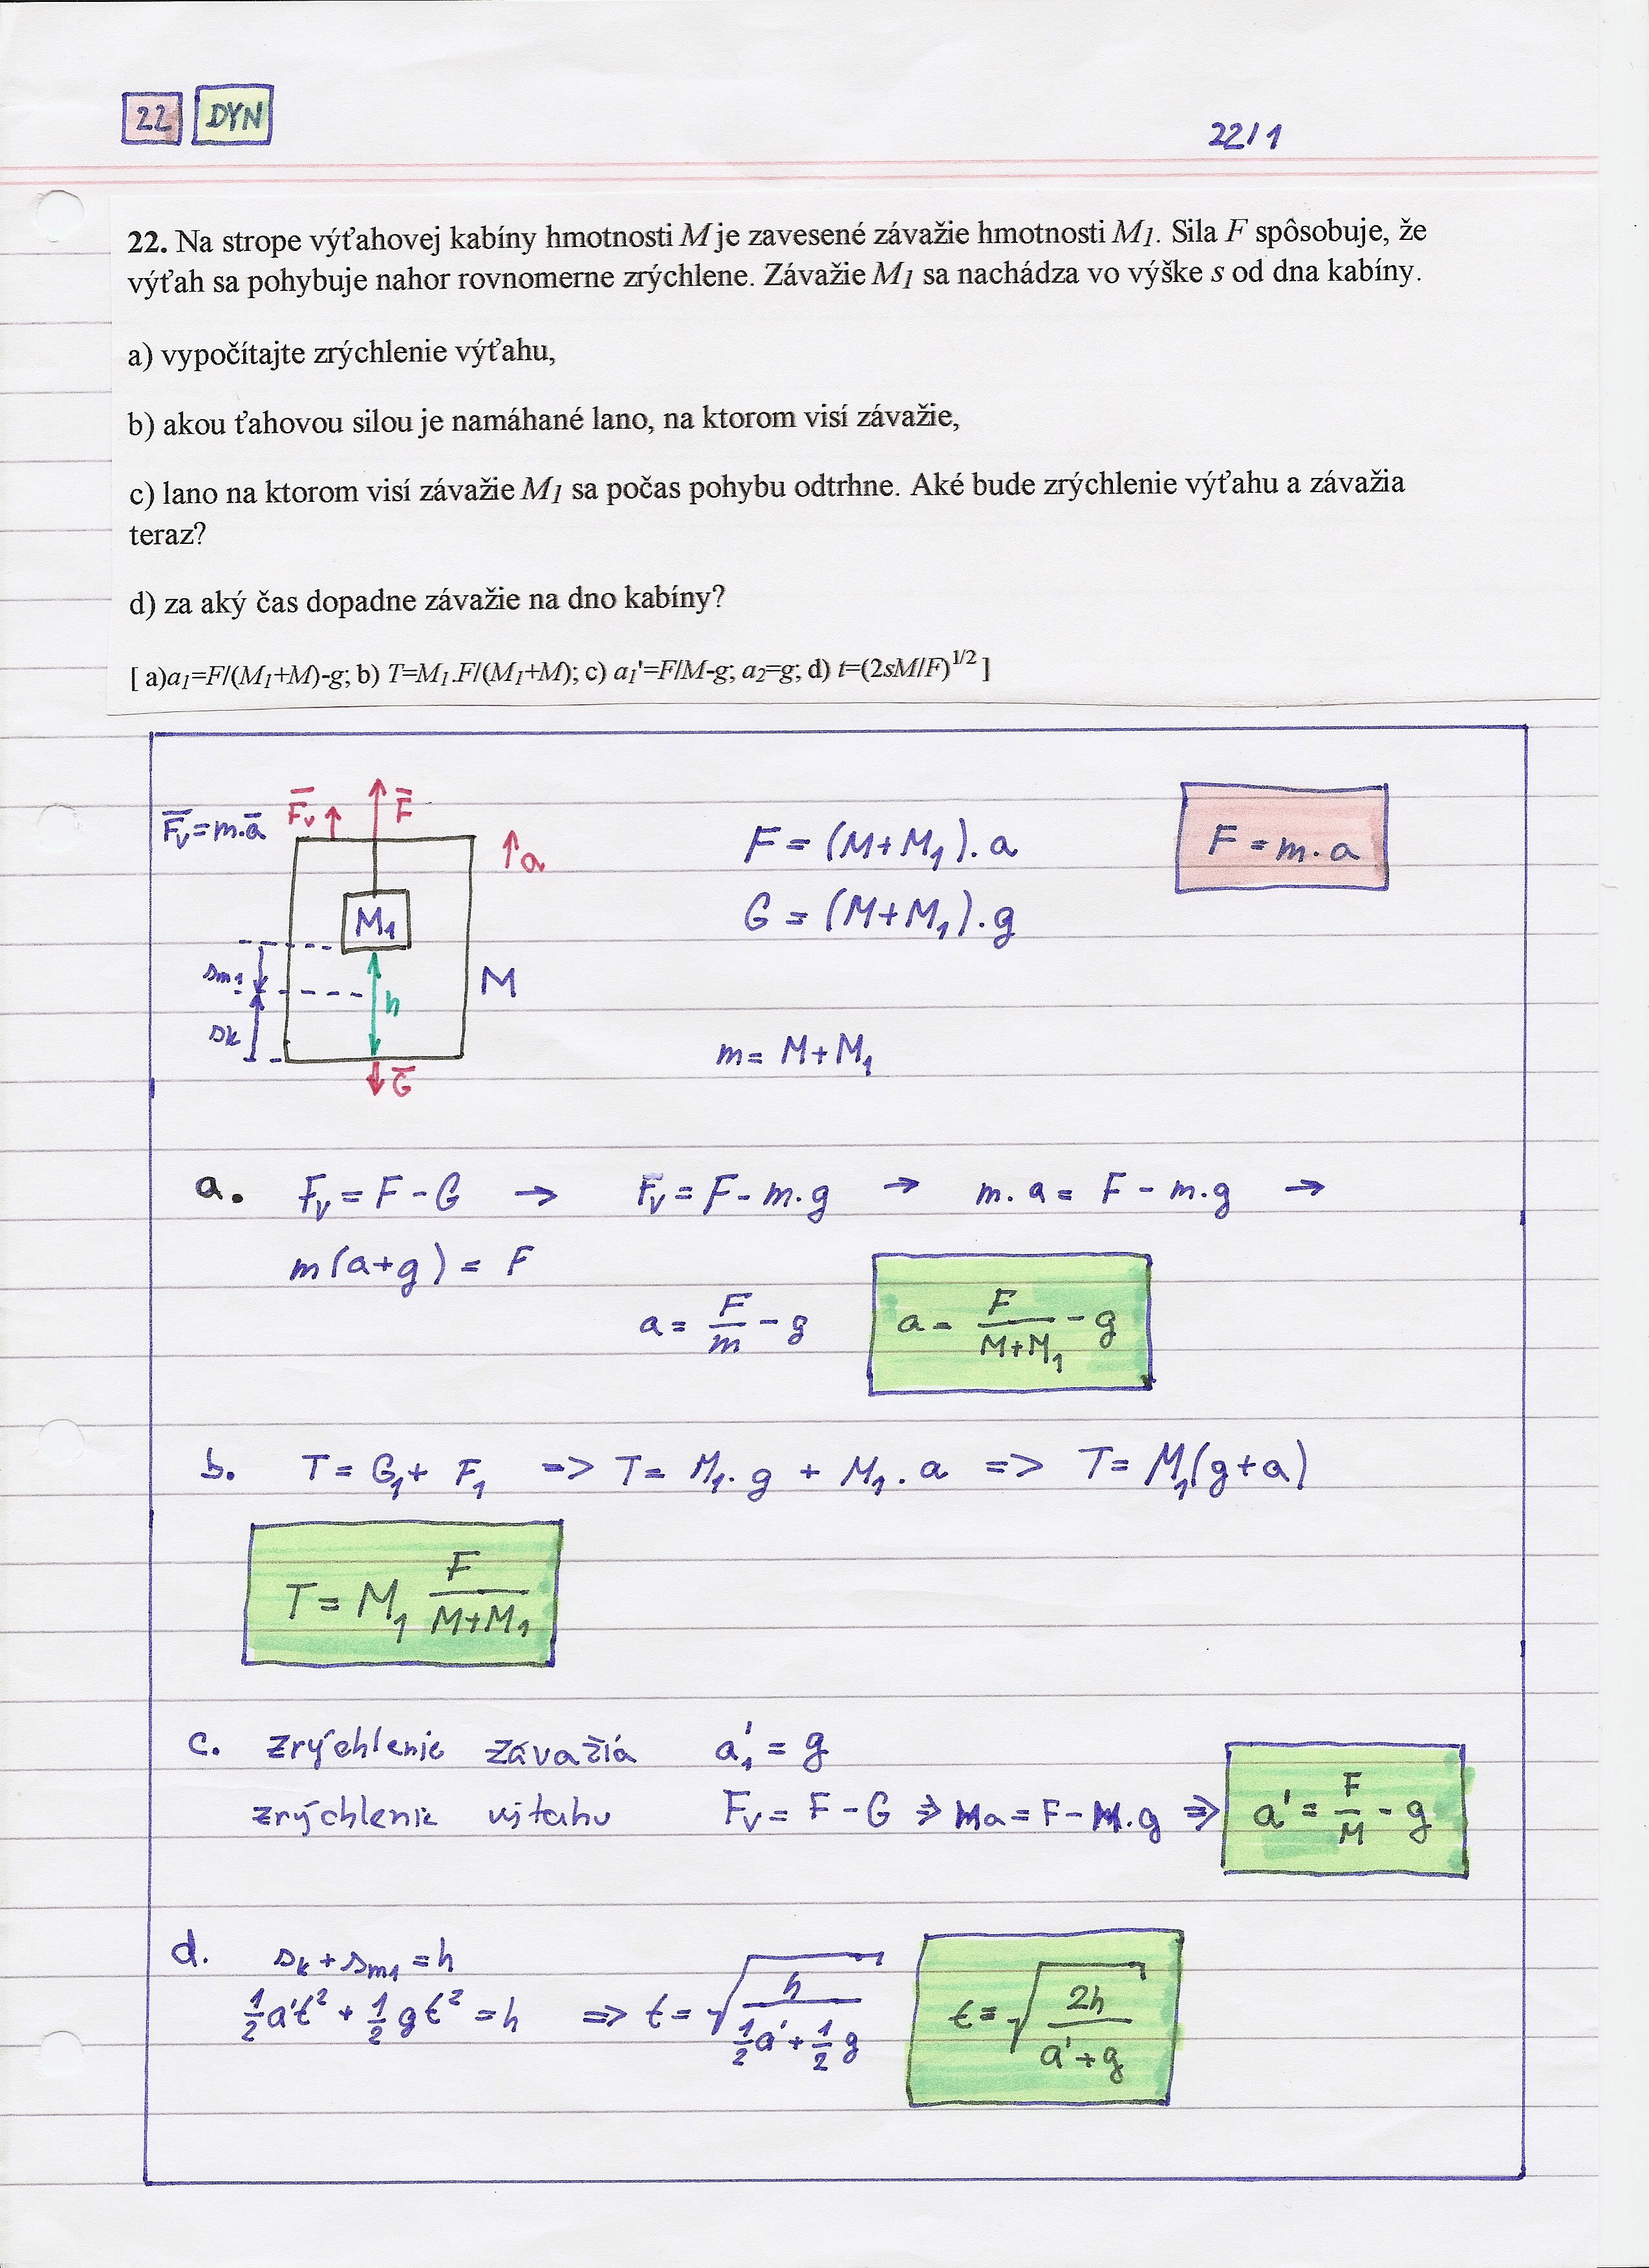 22 DYN 22/1
22. Na strope výťahovej kabíny hmotnosti M je zavesené závažie hmotnosti M1. Sila F spôsobuje, že
výťah sa pohybuje nahor rovnomerne zrýchlene. Závažie M1 sa nachádza vo výške s od dna kabíny.
a) vypočítajte zrýchlenie výťahu,
b) akou ťahovou silou je namáhané lano, na ktorom visí závažie,
c) lano na ktorom visí závažie M1 sa počas pohybu odtrhne. Aké bude zrýchlenie výťahu a závažia
teraz?
d) za aký čas dopadne závažie na dno kabíny?
[ a)a1=F/(M1+M)-g; b) T=M1.F/(M1+M); c) a1'=F/M-g; a2=g; d) t=(2sM/F)^1/2 ]
F̄v = m.ā F̄v F̄ a
M1
sm1
h
sk
M
Ḡ
F = (M+M1).a
F = m.a
G = (M+M1).g
m = M+M1
a. Fv = F - G → Fv = F - m.g → m.a = F - m.g →
m(a+g) = F
a = F/m - g
a = F/(M+M1) - g
b. T = G1 + F1 => T = M1.g + M1.a => T = M1(g+a)
T = M1 F/(M+M1)
c. zrýchlenie závažia a1' = g
zrýchlenie výtahu Fv = F - G => Ma = F - M.g => a' = F/M - g
d. sk + sm1 = h
1/2 a't² + 1/2 gt² = h => t = √(h/(1/2 a' + 1/2 g))
t = √(2h/(a'+g))